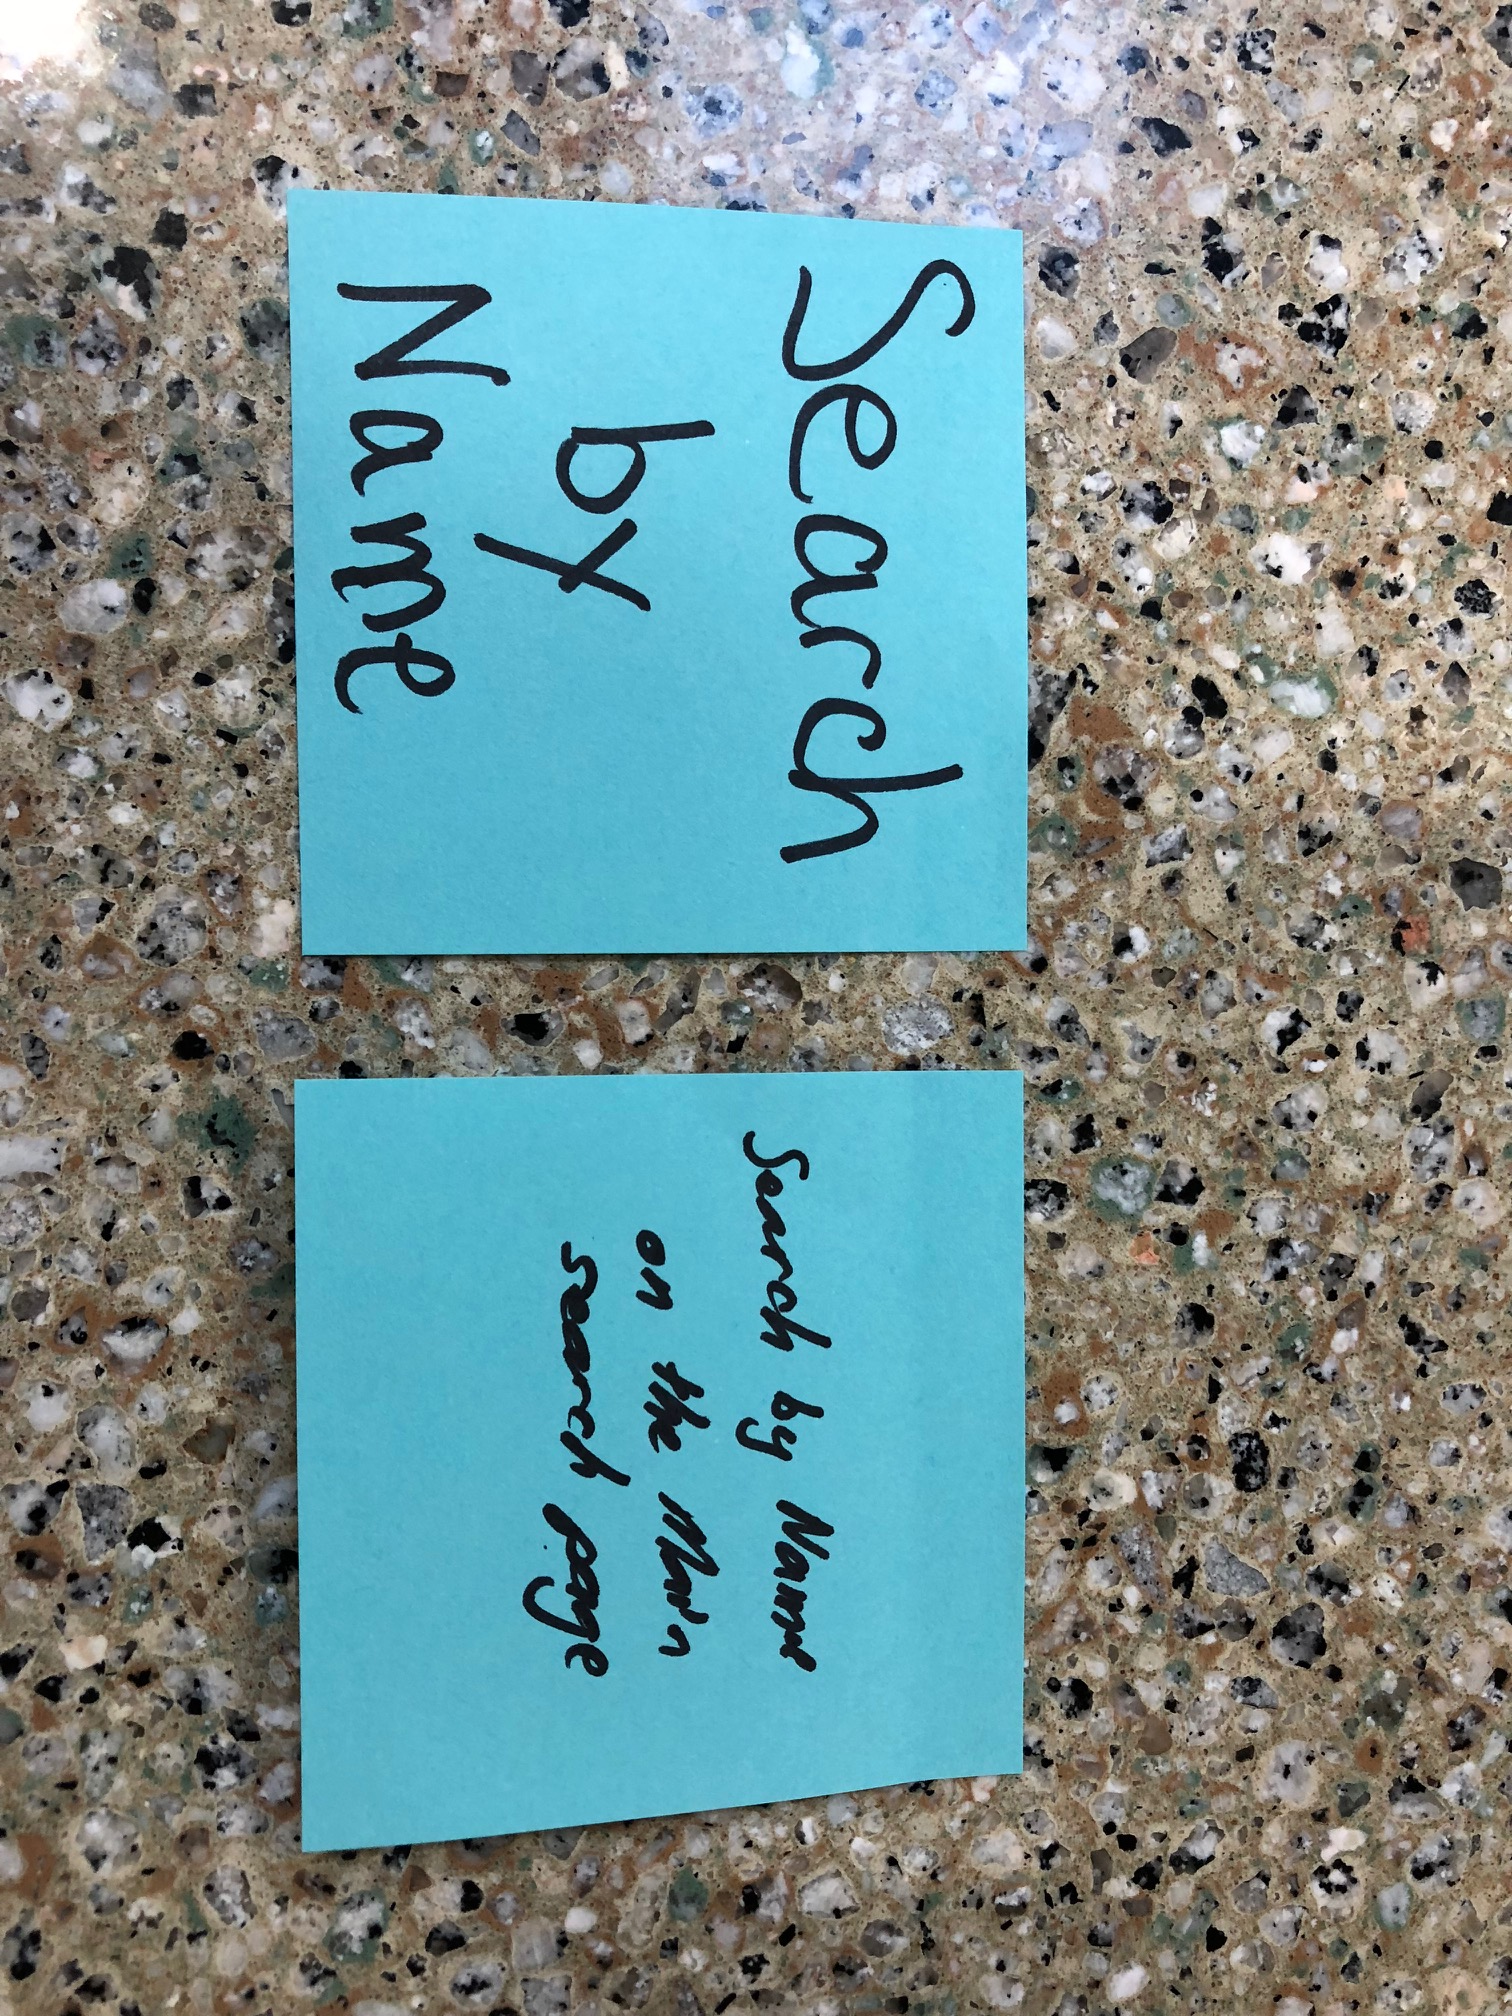 Search
by
Name
Search by Name
on the Main
search page